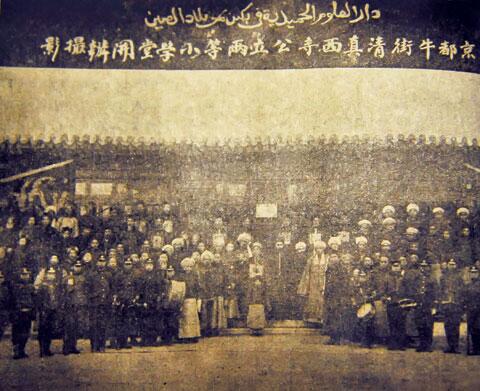 دار العلوم الحميدية في بكين من بلاد الصين
京都牛街清真西寺公立兩等小學堂開辦撮影